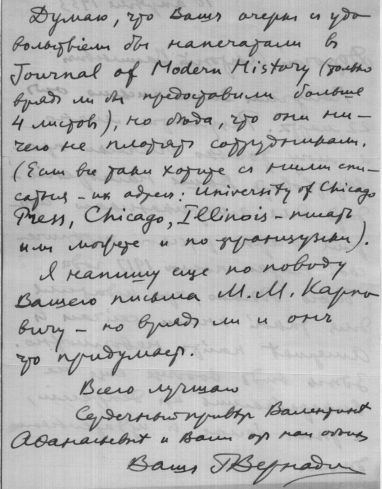 Думаю, что Вашъ очеркъ съ удо
вольствіемъ бы напечатали въ
Journal of Modern History (только
врядъ ли бы предоставили больше
4 листовъ), но бѣда, что они ни-
чего не платятъ сотрудникамъ.
(Если все таки хотите съ ними спи-
саться – ихъ адресъ: University of Chicago
Press, Chicago, Illinois – писать
имъ можете и по французски).
Я напишу еще по поводу
Вашего письма М. М. Карпо
вичу – но врядъ ли и онъ
что придумаетъ.
Всего лучшаго
Сердечный привѣтъ Валентинѣ
Афанасьевнѣ и Вамъ отъ насъ обоихъ
Вашъ ГВернадскій